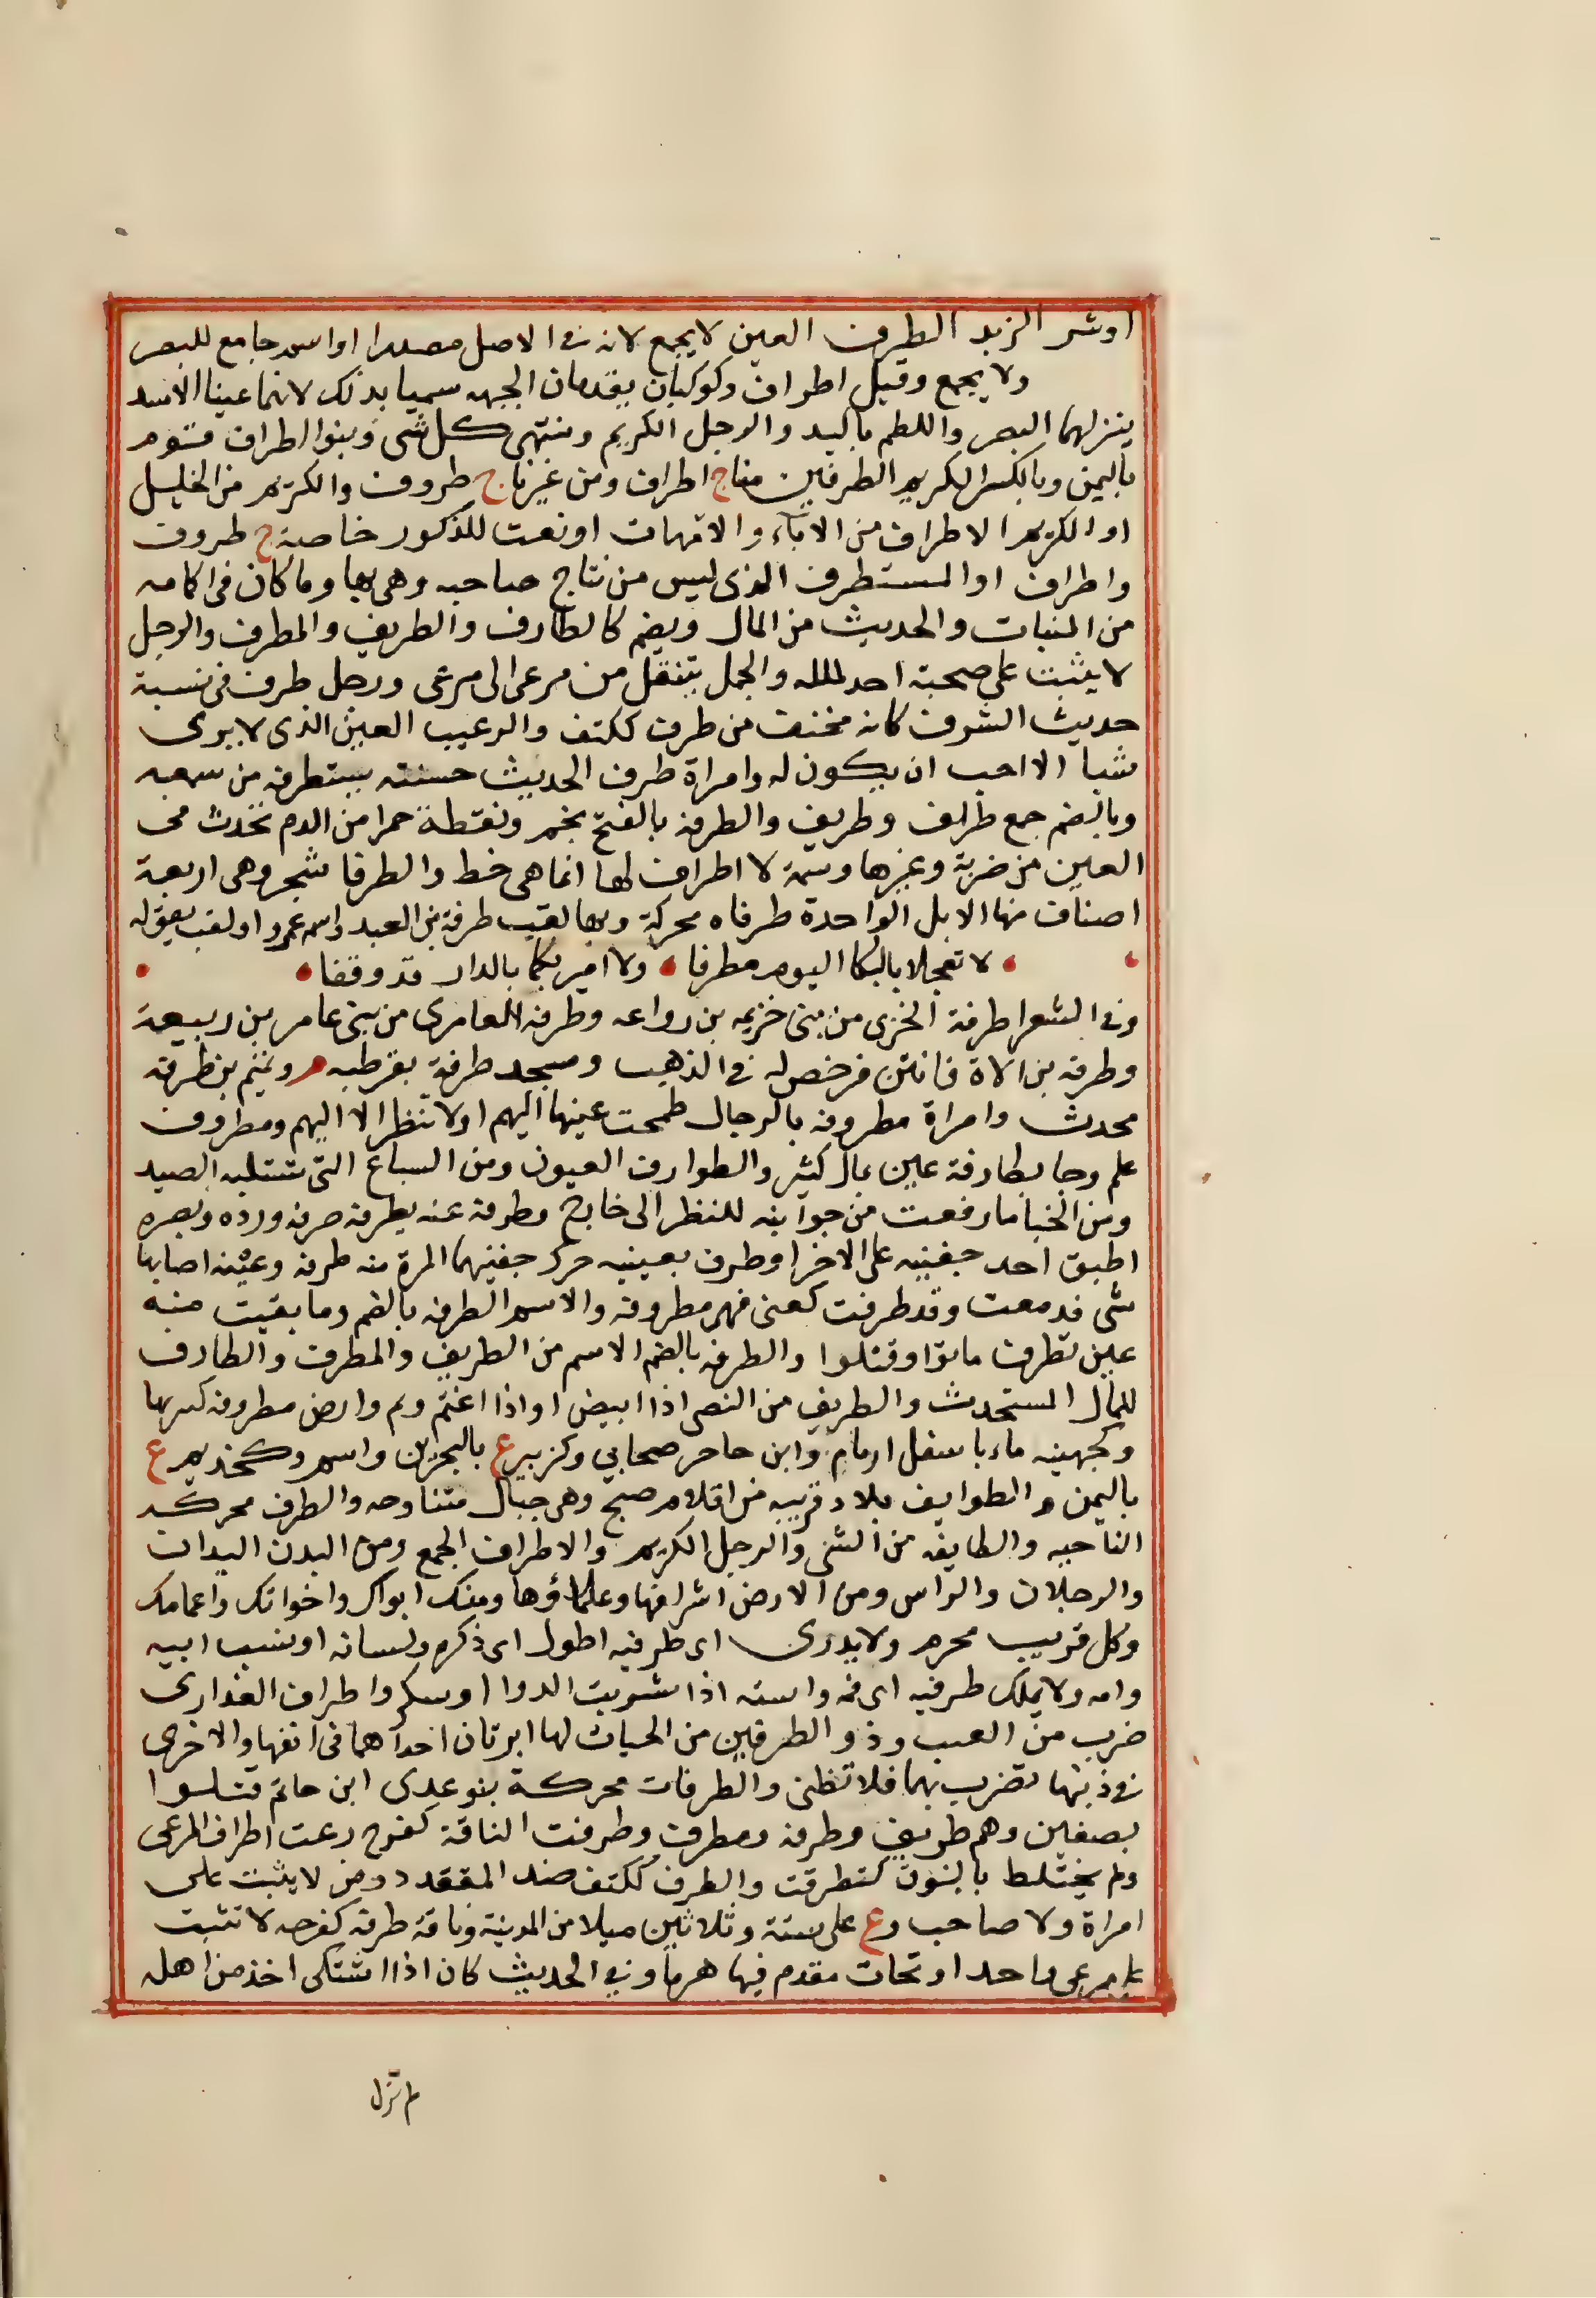 او شر الزبد الطرف العين لا يجمع لانه فى الاصل مصدر او اسم جامع للبصر
ولا يجمع وقيل اطراف وكوكبان يقدمان الجبهه سميا بذلك لانهما عينا الاسد
ينزلهما البصر واللطم باليد والرجل الكريم ومنتهى كل شى وبنوا اطراف قوم
باليمن وبالكسر الكريم الطرفين منا ج اطراف ومن غيرنا ج طروف والكريم من الخليل
او الكريم الاطراف من الاباء والامهات او نعت للذكور خاصة ج طروف
واطراف او المستطرف الذى ليس من نتاج صاحبه وهى بها وما كان فى اكامه
من النبات والحديث من المال ويضم كالطارف والطريف والمطرف والرجل
لا يثبت على صحبة احد لملله والجمل يتنقل من مرعى الى مرعى ورجل طرف فى نسبة
حديث الشرف كانه مخفف من طرف ككتف والرغيب العين الذى لا يرى
شيا الا احب ان يكون له وامراة طرف الحديث حسنته يستطرفه من سمعه
وبالضم جمع طراف وطريف والطرفه بالفتح نجم ونقطة حمرا من الدم تحدث فى
العين من ضربة وغيرها وسمة لا اطراف لها انما هى خط والطرفا شجر وهى اربعة
اصناف منها الاثل الواحدة طرفاه محركة وبها لقب طرفة بن العبد واسمه عمرو او لقب بقوله
لا تعجلا بالبكا اليوم مطرفا • ولا اميريكما بالدار قد وقفا •
وفى الشعرا طرفة الخزى من بنى خزيمه بن رواعه وطرفه العامرى من بنى عامر بن ربيعة
وطرفه بن الاة فانتن فرخص له فى الذهب ومسجد طرفة بقرطبه م وتميم بن طرفه
محدث وامراة مطروفه بالرجال طمحت عينها اليهم او لا تنظر الا اليهم ومطروف
علم وجا بطارفة عين بمال كثير والطوارف العيون ومن السباع التى تستلب الصيد
ومن الخبا ما رفعت من جوانبه للنظر الى خارج وطرفه عنه يطرفه صرفه ورده وبصره
اطبق احد جفنيه على الاخر او طرف بعينيه حرك جفنيهما المرة منه طرفه وعينه اصابها
شى فدمعت وقد طرفت كعنى فهى مطروفه والاسم الطرفه بالضم وما بقيت منه
عين تطرف ماتوا وقتلوا والطرفه بالضم الاسم من الطريف والمطرف والطارف
للمال المستحدث والطريف من النصى اذا ابيض او اذا اعتم وتم وارض مطروفه كثيرتها
وكجهينه ماء باسفل ارمام وابن حاجر صحابي وكزبير ع بالبحرين واسم وكحذيم ع
باليمن والطوايف بلاد قريبه من اقلام صبح وهى جبال متناوحه والطرف محركه
الناحيه والطايفه من الشى والرجل الكريم والاطراف الجمع ومن البدن اليدان
والرجلان والراس ومن الارض اشرافها وعلماؤها ومنك ابواك واخواتك واعمامك
وكل قريب محرم ولا يدرى اى طرفيه اطول اى ذكره ولسانه او نسب ابيه
وامه ولا يملك طرفيه اى فمه واسته اذا شربت الدوا او سكر واطراف العذارى
ضرب من العنب وذو الطرفين من الحيات لها ابرتان احداهما فى انفها والاخرى
فى ذنبها تضرب بهما فلا تطنى والطرفات محركة بنو عدى ابن حاتم قتلوا
بصفين وهم طريف وطرفه ومطرف وطرفت الناقة كفرح رعت اطراف المرعى
ولم يختلط بالنوق كتطرفت والطرف ككتف ضد المقعدد ومن لا يثبت على
امراة ولا صاحب وع على ستة وثلاثين ميلا من المدينة وناقة طرفه كفرحه لا تثبت
على مرعى واحد او تحات مقدم فيها هرما وفى الحديث كان اذا اشتكى احد من اهله
لم تزل